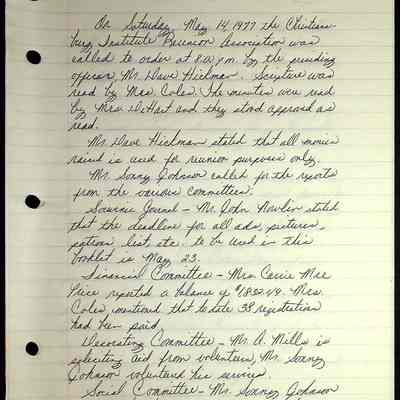 On Saturday, May 14, 1977 the Christians-
burg Institute Reunion Association was
called to order at 8:00 p.m. by the presiding
officer, Mr. Dave Hickman. Scripture was
read by Mrs. Coles. The minutes were read
by Mrs. DeHart and they stood approved as
read.
Mr. Dave Hickman stated that all monies
raised is used for reunion purposes only.
Mr. Sonny Johnson called for the reports
from the various committees:
Souvenir Journal - Mr. John Nowlin stated
that the deadline for all ads, pictures,
patrons list, etc. to be used in this
booklet is May 23.
Financial Committee - Mrs. Carrie Mae
Price reported a balance of $1832.49. Mrs.
Coles, mentioned that to date 38 registration
had been paid.
Decorating Committee - Mr. A. Mills is
soliciting aid from volunteers, Mr. Sonny
Johnson volunteered his services.
Social Committee - Mr. Sonny Johnson